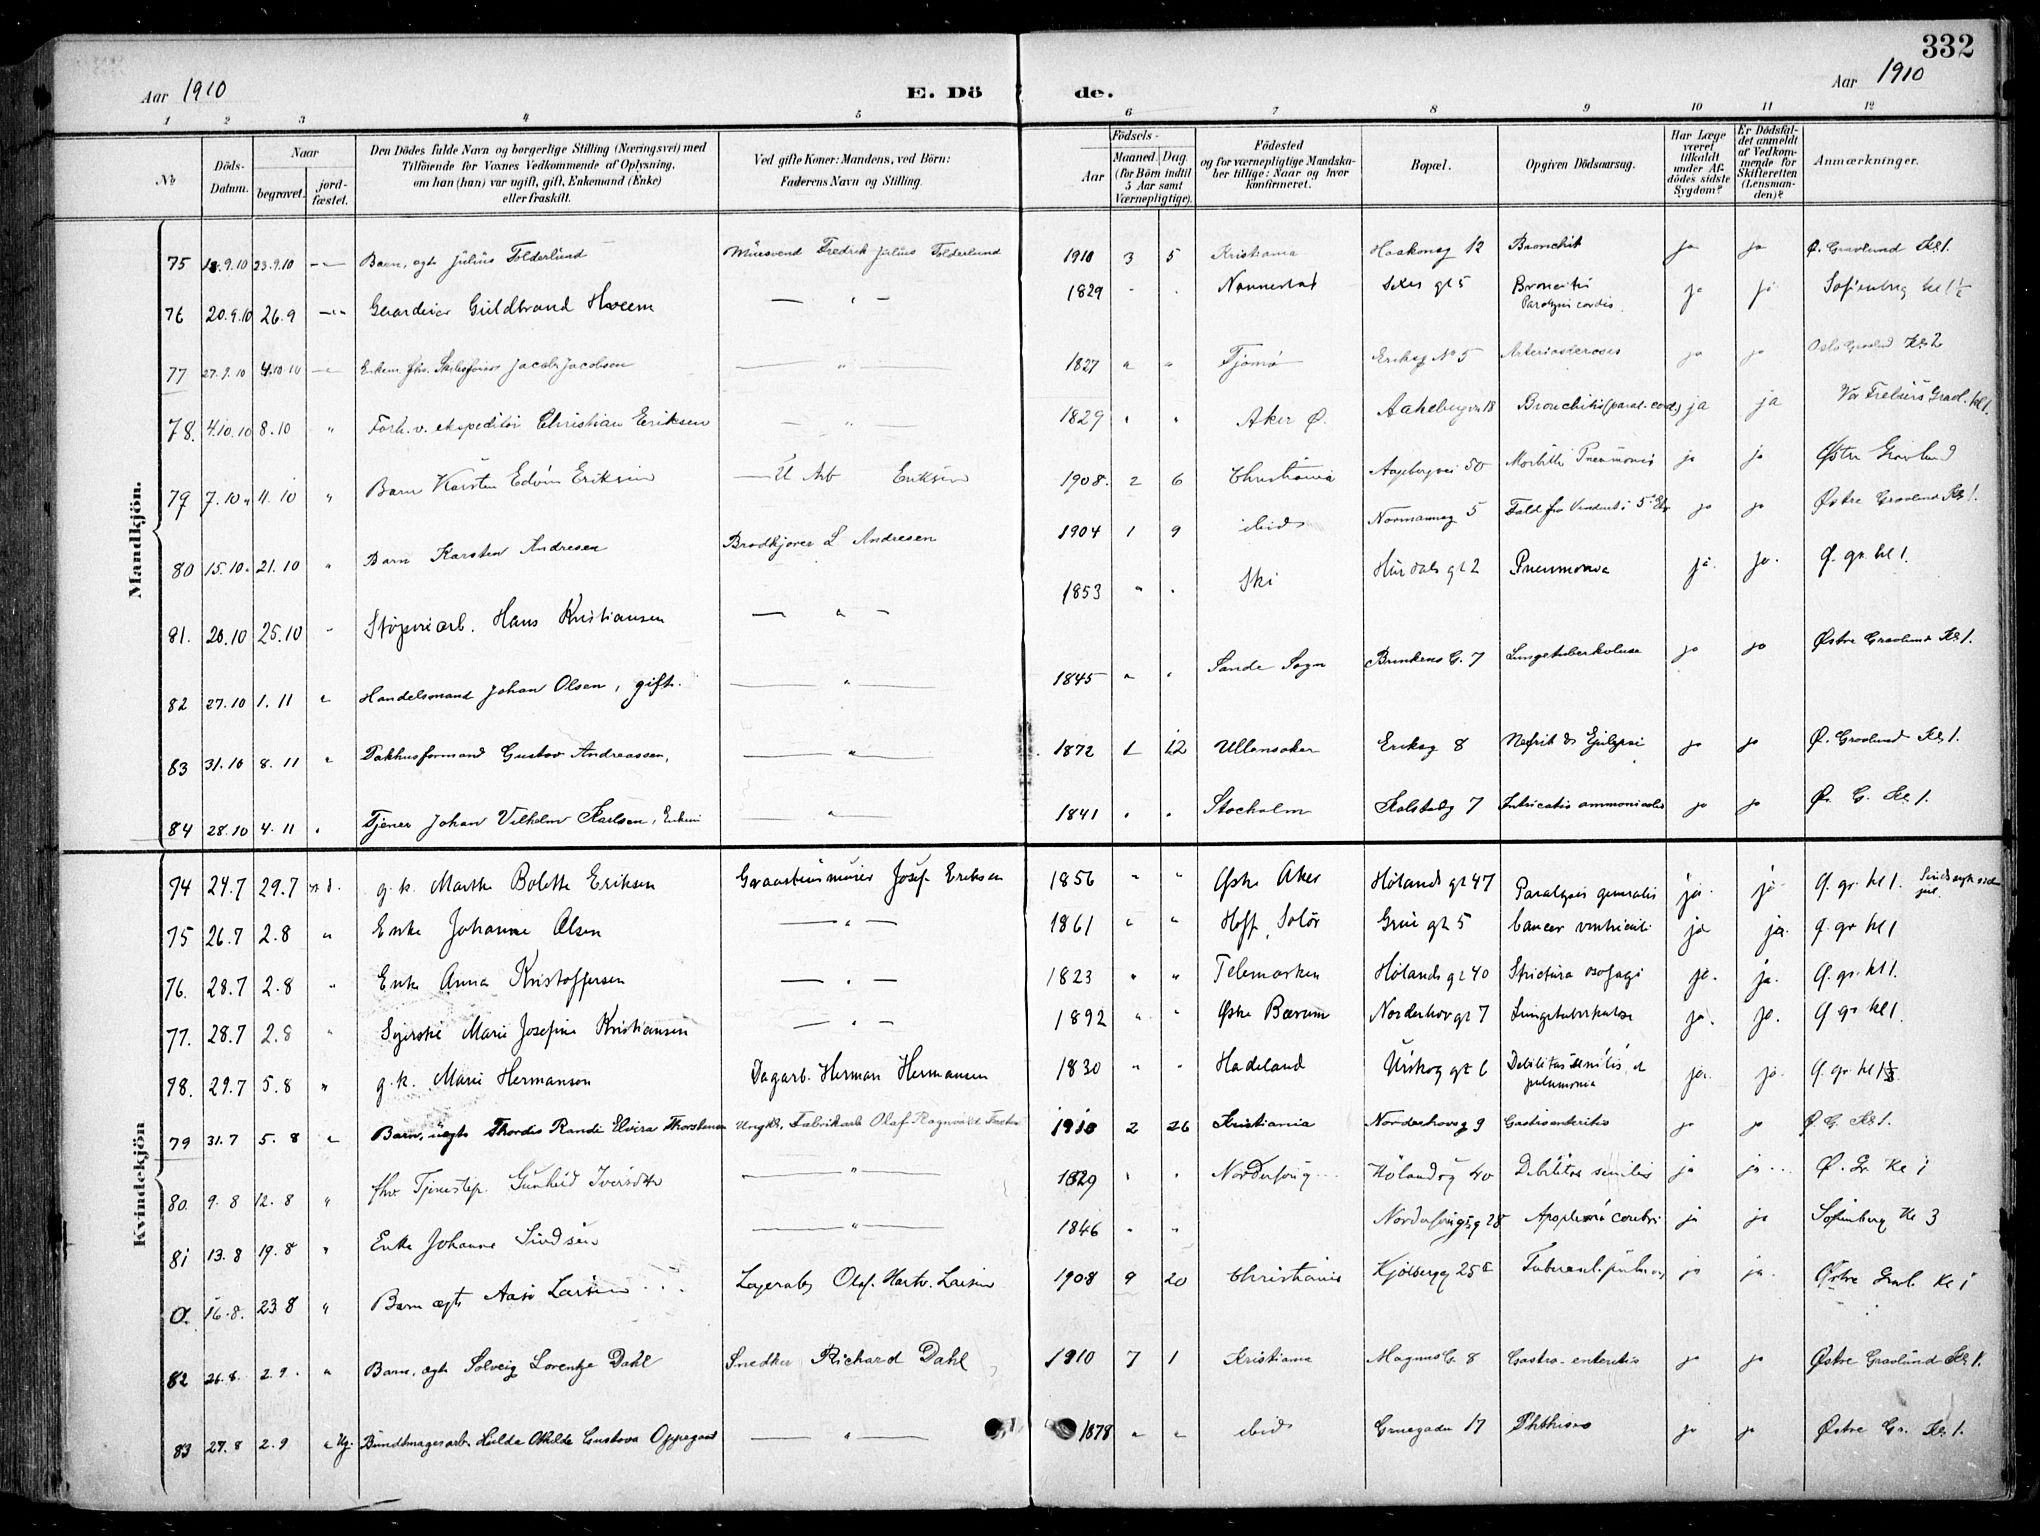 332
Aar 1910
E. Dö de.
Aar 1910
1 2 3 4 5 6 7 8 9 10 11 12
No
Döds-Datum.
Naar
begravet.
jord-fæstet.
Den Dödes fulde Navn og borgerlige Stilling (Næringsvei) med
Tilföiende for Voxnes Vedkommende af Oplysning,
om han (hun) var ugift, gift, Enkemand (Enke)
eller fraskilt.
Ved gifte Koner: Mandens, ved Börn:
Faderens Navn og Stilling.
Födsels-
Aar
Maaned. Dag.
(for Börn indtil
5 Aar samt
Værnepligtige).
Födested
og for værnepligtige Mandska-
ber tillige: Naar og hvor
konfirmeret.
Bopæl.
Opgiven Dödsaarsag.
Har Læge
været
tilkaldt
under Af-
dödes sidste
Sygdom?
Er Dödsfal-
det anmeldt
af Vedkom-
mende for
Skifteretten
(Lensman-
den)?
Anmærkninger.
Mandkjön.
75 18.9.10 23.9.10 Barn, egte Julius Tolderlund Mursvend Fredrik Julius Tolderlund 1910 3 5 Kristiania Haakonsg 12 Bronchit ja ja Ø. Gravlund Kl 1.
76 20.9.10 26.9 Guldbrand Hveem — " — 1829 Nannestad gt 5 Broncitis ja ja Sofienberg kl 1½
Paralysis cordis
77 27.9.10 4.10.10 Enkem. fhv. Jacob Jacobsen — " — 1827 " " Tjømø Eriksg No 5 ja ja Oslo Gravlund Kl. 2
78. 4.10.10 8.10 " Forh. v. ekspeditør Christian Eriksen — " — 1829 " " Aker Ø. 18 Bronchitis (paral. cord.) ja ja Vor Frelsers Gravl. kl 1.
79 7.10 " 11.10 " Barn Karsten Edvin Eriksen — U Arb Eriksen 1908. 2 6 Christiania 50 Morbilli Pneumonia ja ja Østre Gravlund
80 15.10. 21.10 " Barn Karsten Andresen Brødkjører L Andresen 1904 1 9 ibid Normannsg 5 Fald fra Vindu i 5. Etg ja ja Østre Gravlund Kl 1.
81. 20.10 25.10 " Støperiarb. Hans Kristiansen — " — 1853 " " Ski Hurdals gt 2 Pneumonia ja. ja. Ø. gr. kl 1.
82 27.10 1.11 " Handelsmand Johan Olsen, gift. — " — 1845 " " Sande Sogn Brinkens G. 7 Lungetuberkulose ja ja Østre Gravlund Kl 1.
83 31.10 8.11 " Pakhusformand Gustav Andreassen, — " — 1872 1 12 Ullensaker Eriksg 8 ja ja Ø. Gravlund Kl. 1.
84 28.10 4.11 " Tjener Johan Vilhelm Karlsen, Enkem — " — 1841 " " Stocholm 7 ja ja Ø. G. Kl 1.
Kvindekjön
74 24.7 29.7 s. d. g. k. Marthe Bolette Eriksen Graastensmurer Josef Eriksen 1856 " " Østre Aker Hølands gt 47 Paralysis generalis ja. ja Ø. gr. kl 1.
75 26.7 2.8 " Enke Johanne Olsen — " — 1861 " " Hoff, Solør Grue gt 5 Cancer ventriculi ja ja. Ø. gr kl 1
76. 28.7 2.8 " Enke Anna Kristoffersen — " — 1823 " " Telemarken Hølands gt 40 Strictura osofagi ja. ja. Ø. gr. kl 1.
77. 28.7 2.8 " Syerske Marie Josefine Kristiansen — " — 1892 " " Østre Bærum Norderhov gt 7 Lungetuberkulose ja. ja. Ø gr kl 1.
78. 29.7 5.8 " g. k. Marie Hermanson Dagarb. Herman Hermansen 1830 " " Hadeland Urskog gt 6 Debilitas senilis et ja. ja. Ø. gr. kl 1½
pneumonia
79 31.7 5.8 " Barn, uegte Thordis Randi Elvira Thorstensen Ungk. Fabrikarb Olaf Ragnvald 1910 2 26 Kristiania Norderhovsg 9 Gastroenteritis ja ja Ø G. Kl 1.
80. 9.8 12.8 " fhv Tjenestep. Gunhild Iversdtr — " — 1829 " " Hølandsg 40 Debilitas senilis ja ja Ø. Gr Kl 1
81 13.8 19.8 " Enke Johanne — " — 1846 " " 28 Apoplexia cerebri ja ja Sofienberg Kl 3
16.8. 23.8 " Barn ægte Larsen Lagerarb Olaf. Hartv. Larsen 1908 9 20 Christiania Kjølbergg 25 Tubercul. pulm ja ja. Østre Gravl. Kl 1
82 26.8. 2.9. " Barn, ægte Solveig Lorentze Dahl Snedker Richard Dahl 1910 7 1 Kristiania Magnus G. 8 Gastro-enteritis ja ja Østre Gravlund Kl 1.
83 27.8 2.9 " Ug. Bundtmagerarb. Hilda Gustava Oppegaard — " — 1878 " " ibid Gruegaden 17 Phthisis ja ja Østre Gr. Kl 1.